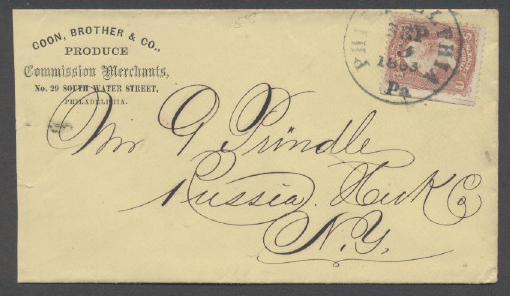 COON, BROTHER & CO.,
PRODUCE
Commission Merchants,
No. 29 SOUTH WATER STREET,
PHILADELPHIA.
PHILADELPHIA
SEP
1863
Pa
Wm G Prindle
Russia Herk Co
N.Y.